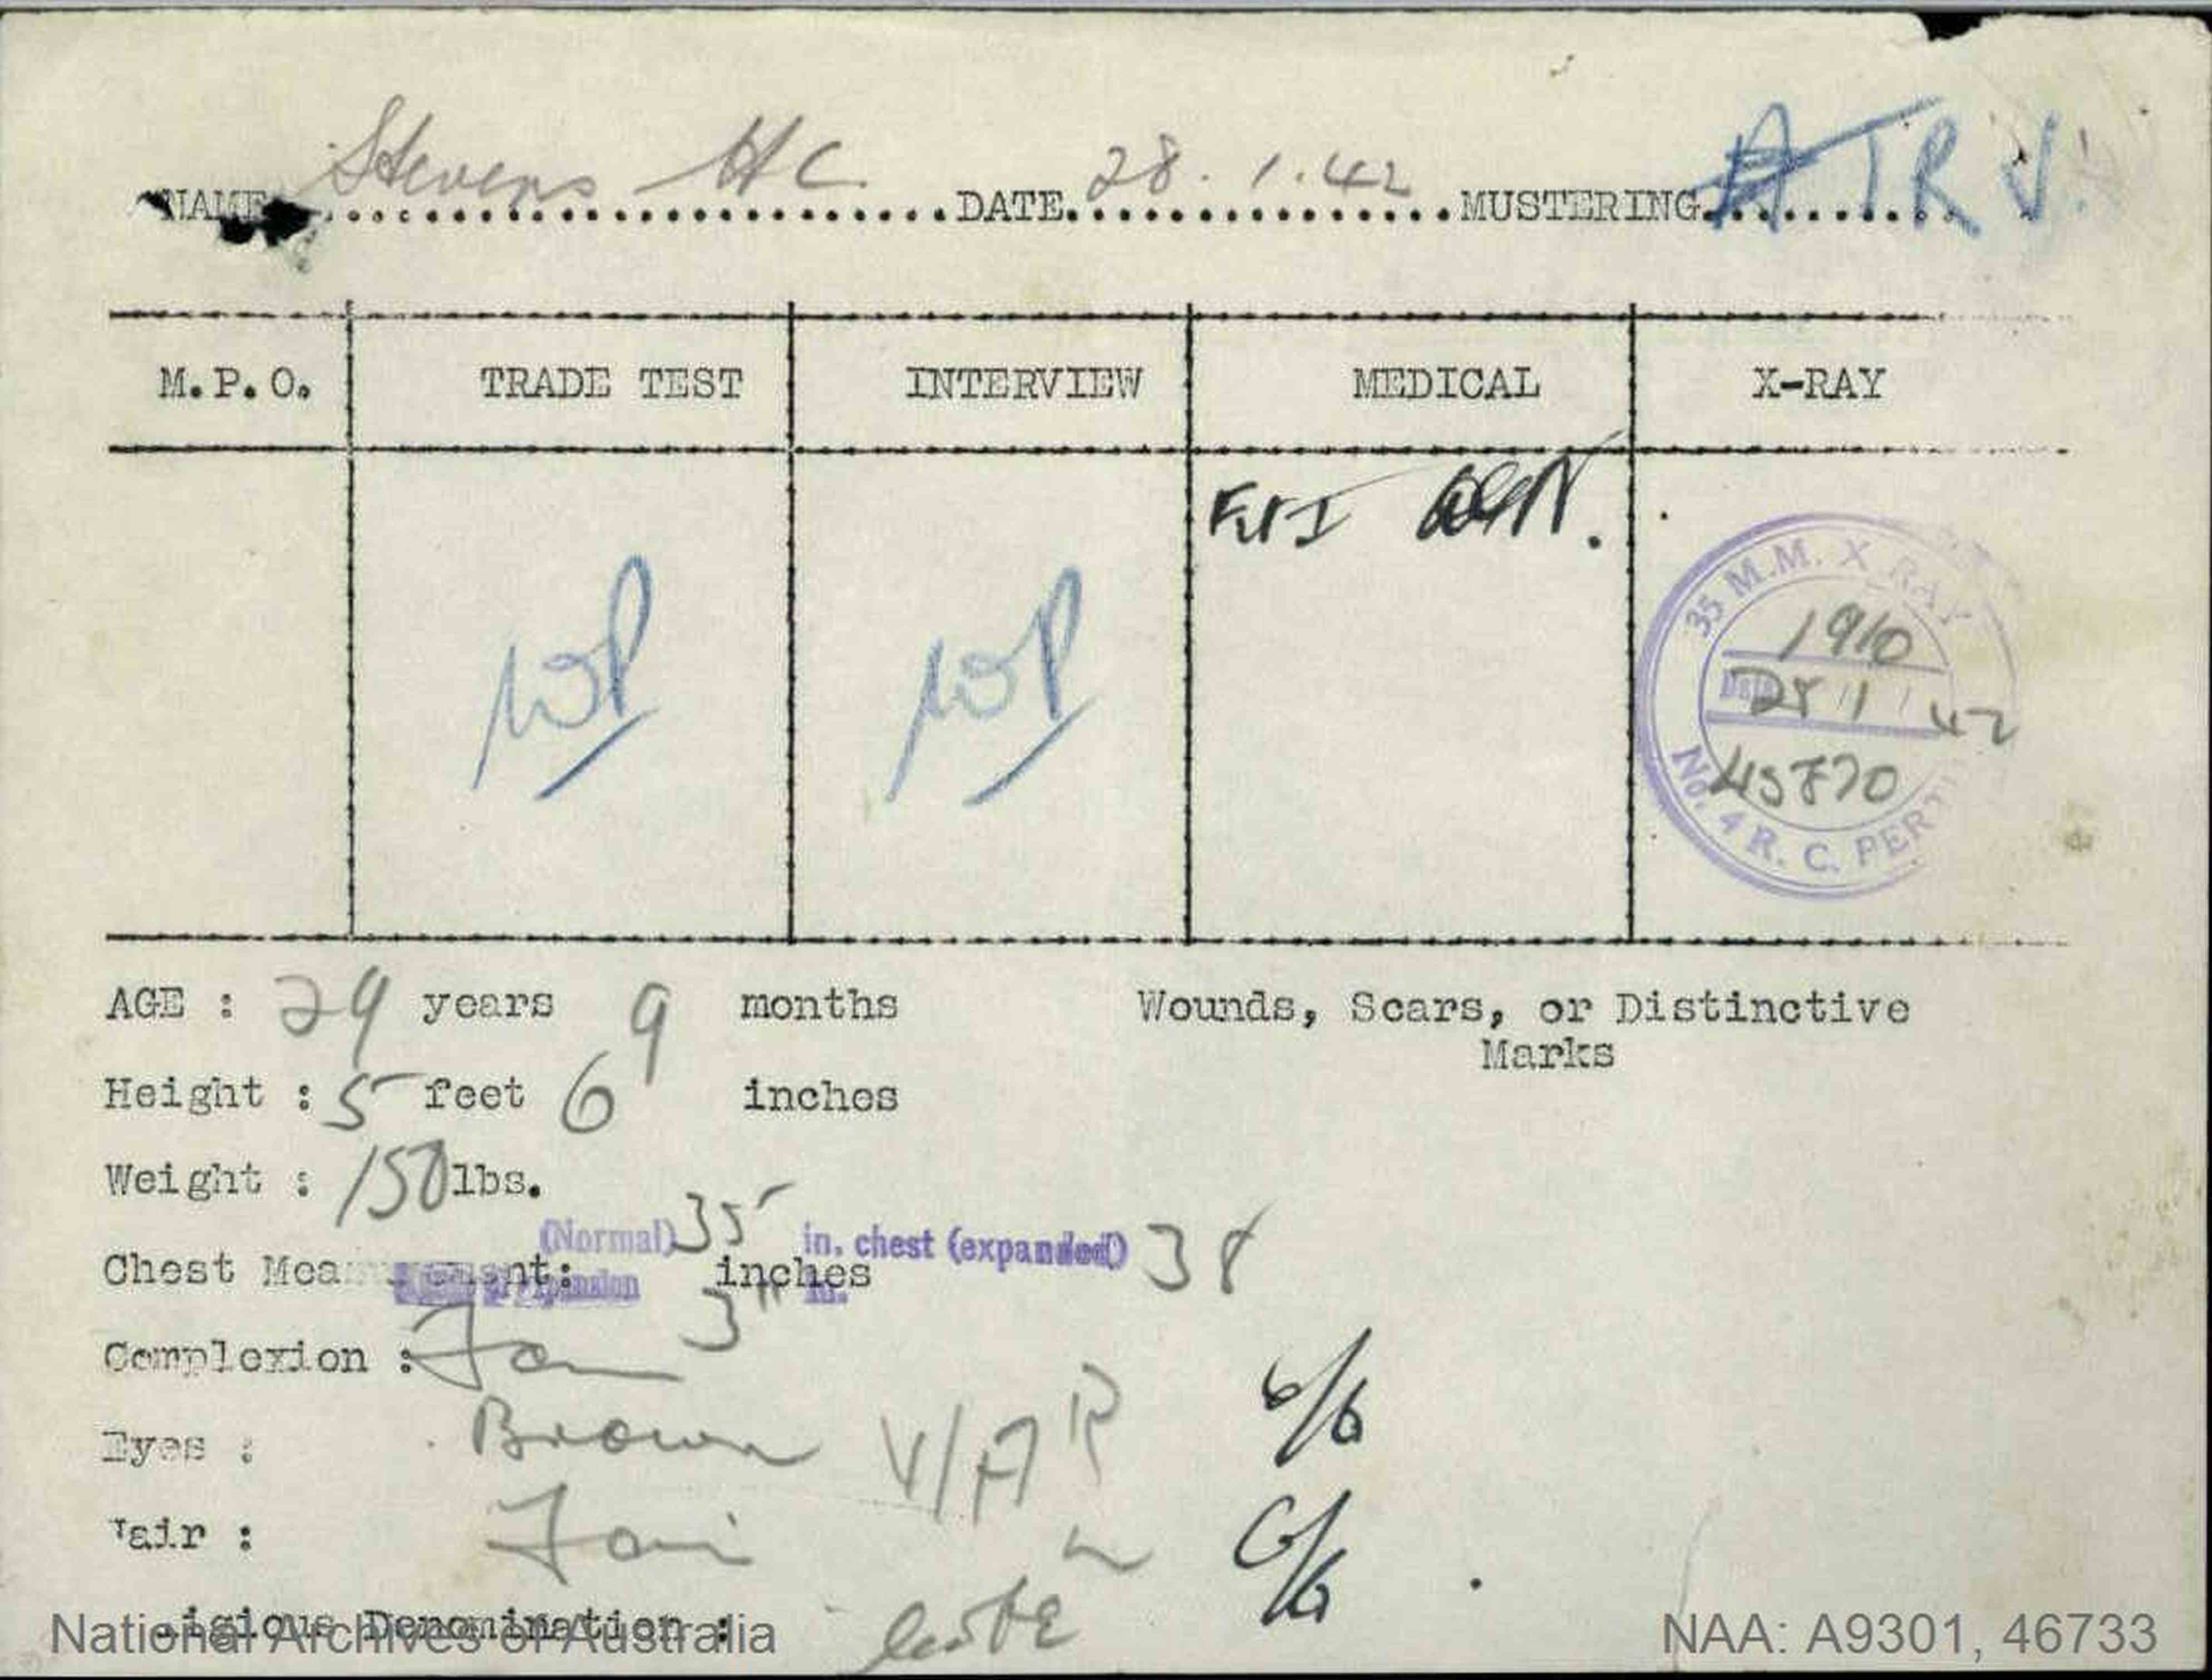 Stevens H C 28.1.42 A T R
NAME DATE MUSTERING
M.P.O. TRADE TEST INTERVIEW MEDICAL X-RAY
35 M.M. X RAY
1910
28 1 42
45870
No. 4 R. C. PERTH
AGE : 29 years 9 months Wounds, Scars, or Distinctive
Marks
Height : 5 feet 6 inches
Weight : 150 lbs.
(Normal) 35 in. chest (expanded) 38
Chest Mea ent: inches
3" in.
Complexion : Fair
Eyes : Brown V/A R 6/6
air : Fair L 6/6
igious Denomination : C of E
National Archives of Australia NAA: A9301, 46733